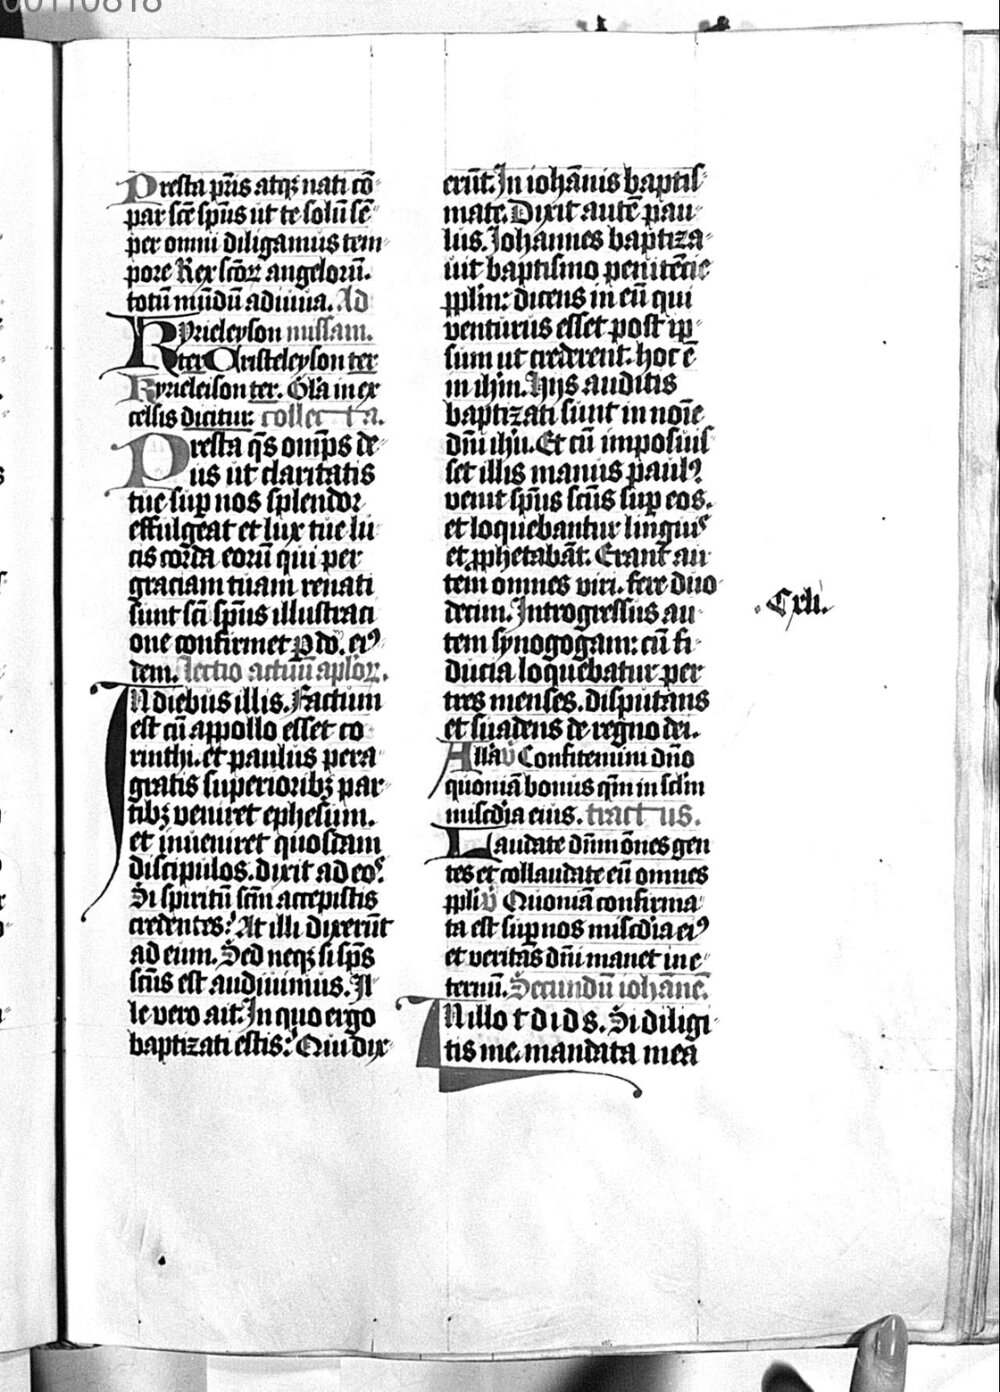 00110818
Presta pr̄is atqꝫ nati cō
par scē sp̄us ut te solū sē
per omni diligamus tem
pore Rex scōꝝ angeloꝝū.
totū mūdū adiuua. Ad
Kyrieleyson missam.
ter Christeleyson ter
Kyrieleison ter. Gl̄a in ex
celsis dicitur. collecta.
Presta q̄s om̄ps de
us ut claritatis
tue sup̱ nos splendor
effulgeat et lux tue lu
cis corda eorū qui per
graciam tuam renati
sunt sc̄i sp̄us illustraci
one confirmet P dō. eiꝰ
dem. Lectio actuū aploꝝ.
In diebus illis. Factum
est cū appollo esset co
rinthi. et paulus pera
gratis superioribꝫ par
tibꝫ veniret ephesum.
et inueniret quosdam
discipulos. dixit ad eos.
Si spiritū scm̄ accepistis
credentes? At illi dixerūt
ad eum. Sed neqꝫ si sp̄s
sc̄us est audiuimus. Il
le vero ait. In quo ergo
baptizati estis? Qui dix
erūt. In iohānis baptis
mate. Dixit autē pau
lus. Iohannes baptiza
uit baptismo penitētie
pp̄lm: dicens in eū qui
venturus esset post ip̄
sum ut crederent. hoc ē
in ih̄m. Hijs auditis
baptizati sunt in noīe
dn̄i ih̄u. Et cū imposuis
set illis manus paulꝰ
venit sp̄us sc̄us sup̱ eos.
et loquebantur linguis
et ꝓphetabāt. Erant au
tem omnes viri. fere duo
decim. Introgressus au
tem synogogam: cū fi
ducia loquebatur per
tres menses. disputans
et suadens de regno dei.
All̄a v̄ Confitemini dn̄o
quoniā bonus qm̄ in sclm̄
misc̄dia eius. tractus.
Laudate dn̄m ōnes gen
tes et collaudate eū omnes
pp̄li v̄ Quoniā confirma
ta est sup̱ nos misc̄dia eiꝰ
et veritas dn̄i manet in e
ternū. Secundū iohānē.
In illo t d i d s. Si diligi
tis me. mandata mea
.Cxli.